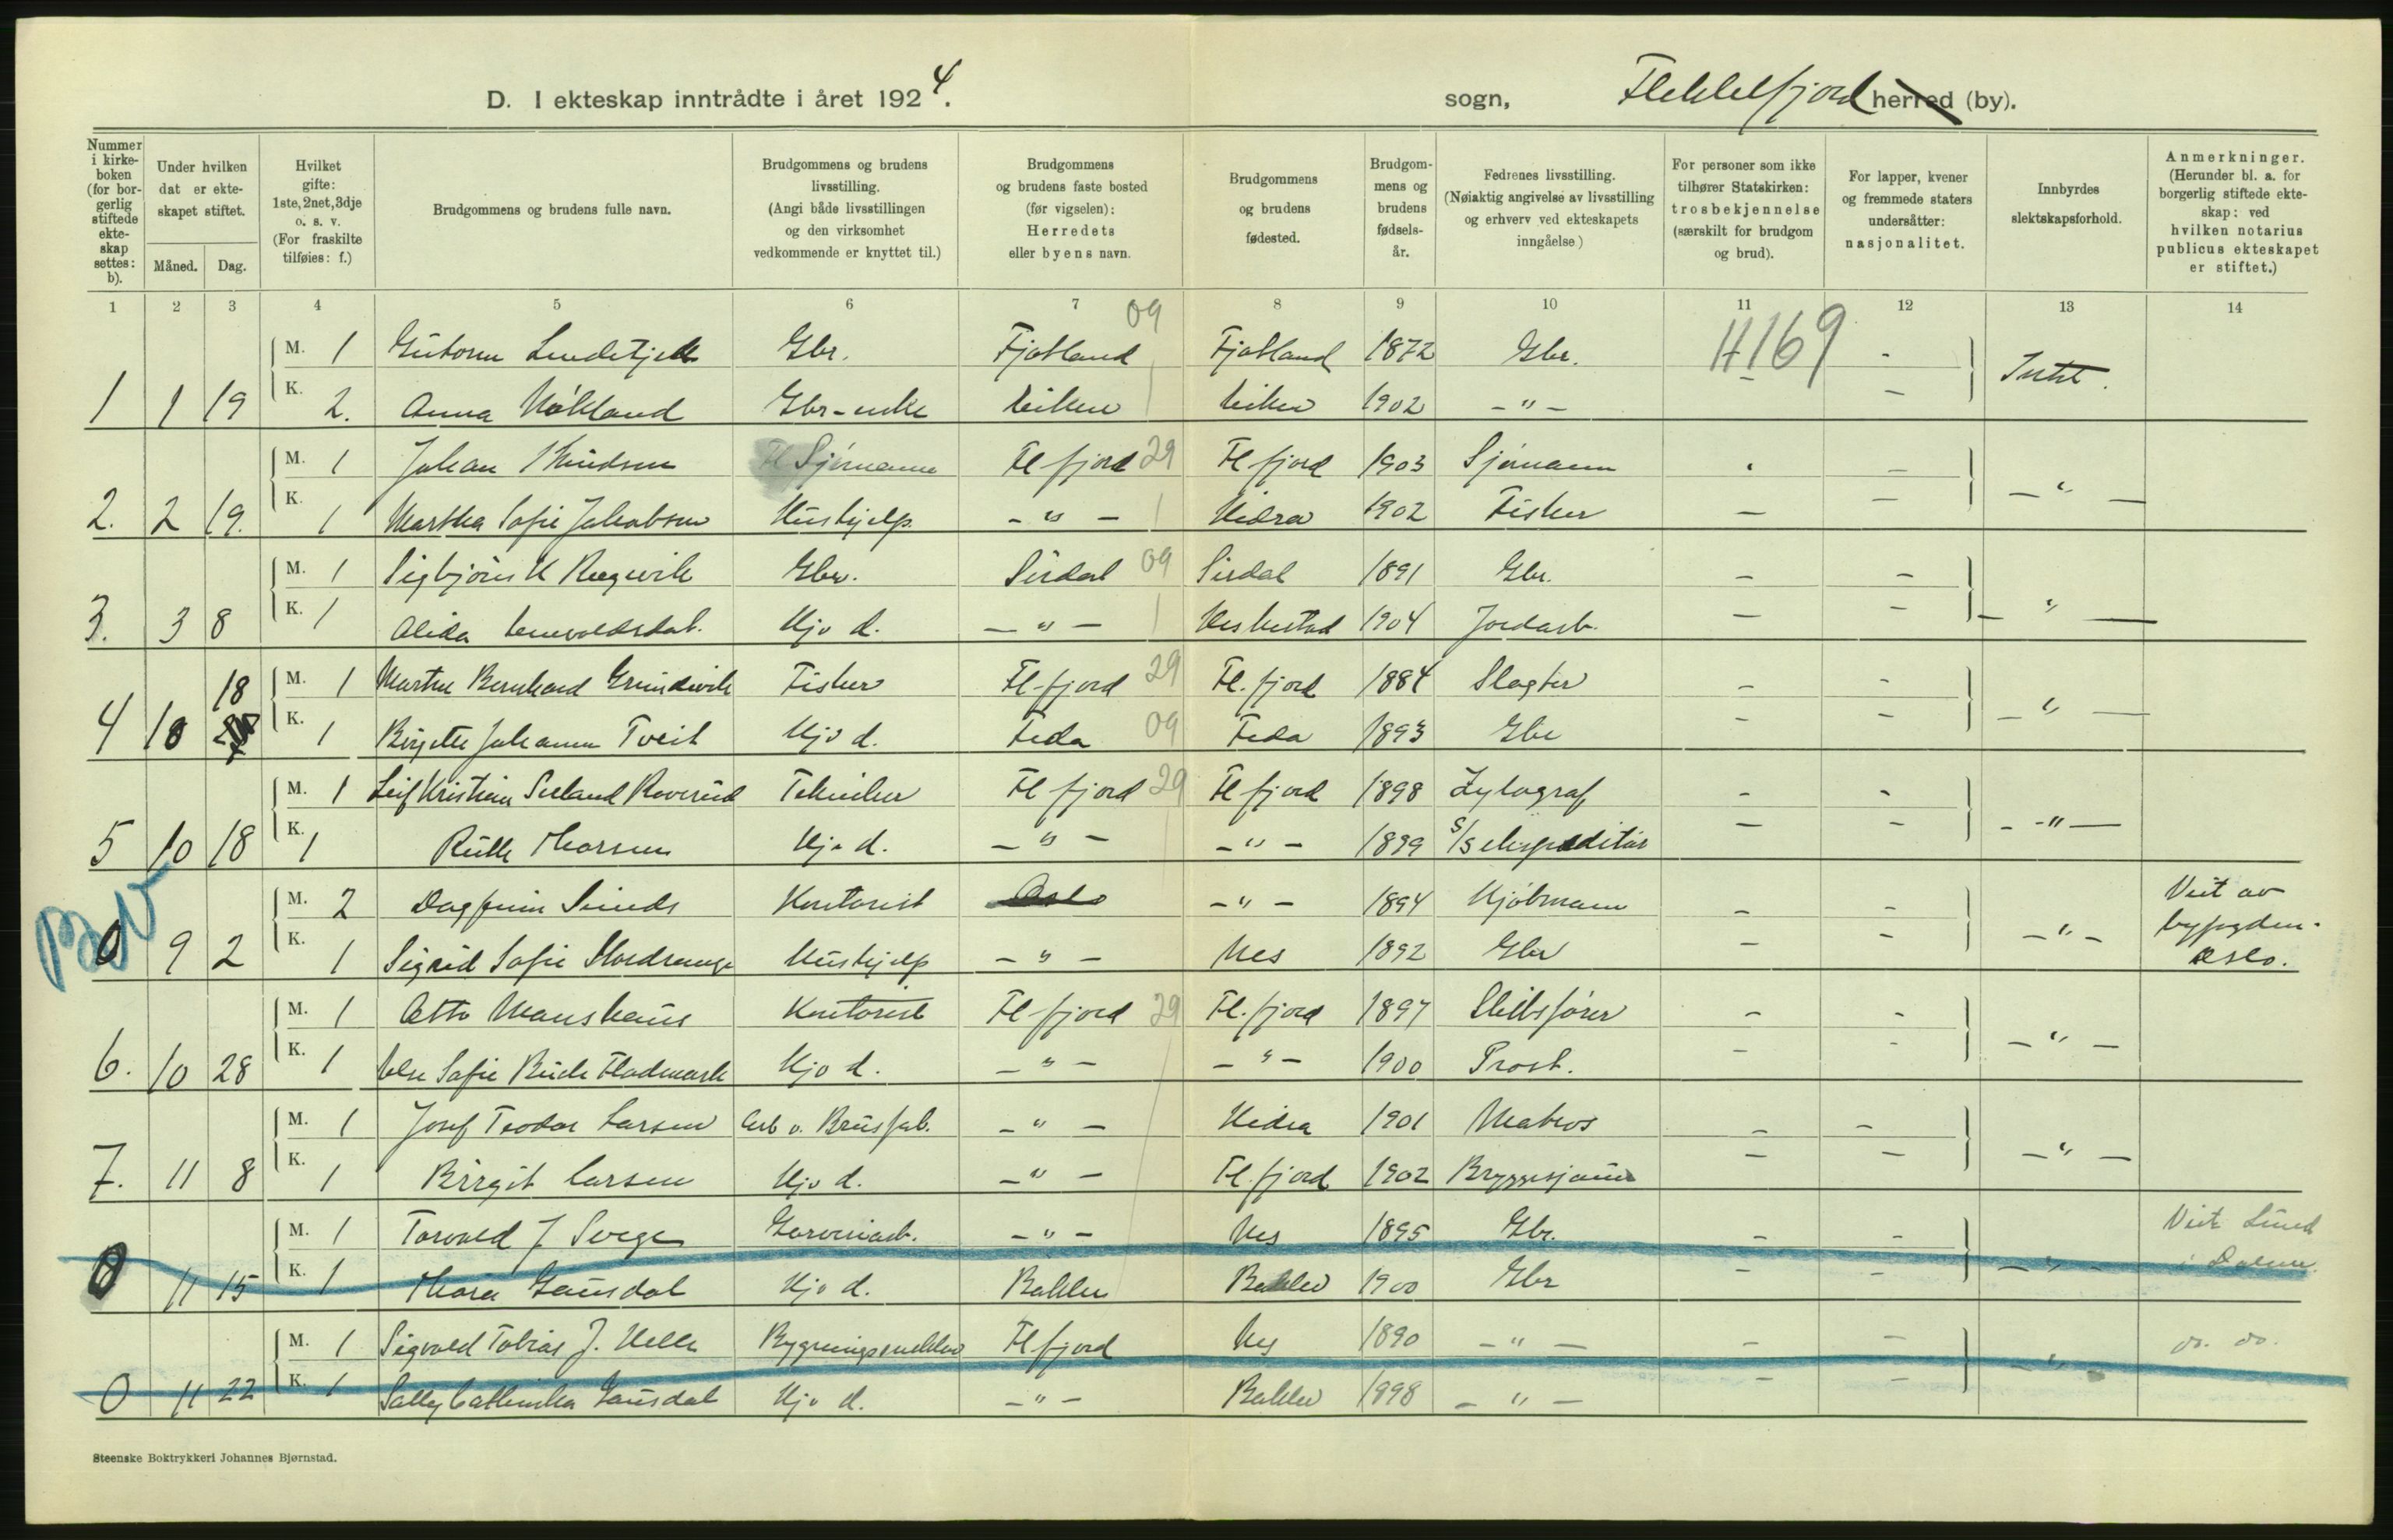 D. I ekteskap inntrådte i året 1924.
sogn, Flekkefjord herred (by).
Nummer i kirkeboken (for borgerlig stiftede ekteskap settes: b).
Under hvilken dat er ekteskapet stiftet.
Måned. Dag.
Hvilket gifte: 1ste, 2net, 3dje o. s. v. (For fraskilte tilføies: f.)
Brudgommens og brudens fulle navn.
Brudgommens og brudens livsstilling. (Angi både livsstillingen og den virksomhet vedkommende er knyttet til.)
Brudgommens og brudens faste bosted (før vigselen): Herredets eller byens navn.
Brudgommens og brudens fødested.
Brudgommens og brudens fødselsår.
Fedrenes livsstilling. (Nøiaktig angivelse av livsstilling og erhverv ved ekteskapets inngåelse)
For personer som ikke tilhører Statskirken: trosbekjennelse (særskilt for brudgom og brud).
For lapper, kvener og fremmede staters undersåtter: nasjonalitet.
Innbyrdes slektskapsforhold.
Anmerkninger. (Herunder bl. a. for borgerlig stiftede ekteskap: ved hvilken notarius publicus ekteskapet er stiftet.)
1 2 3 4 5 6 7 8 9 10 11 12 13 14
09
M. 1 Gbr. Fjotland Fjotland 1872 Gbr. 169 -
1 1 19 K. 2. Anna Gbr-enke 1902 - " - - Intet.
M. 1 Johan Knudsen Sjømann Fl fjord 29 Fl fjord 1903 Sjømann -
2. 2 19. K. 1 Martha Sofie Jakobsen Hushjelp - " - Hidra 1902 Fisker - - - " -
M. 1 Sigbjørn K Gbr. Sirdal 09 Sirdal 1891 Gbr. - -
3. 3 8 K. 1 Alida Hjv d. - " - 1904 Jordarb. - - - " -
18 M. 1 Bernhard Fisker Fl-fjord 29 Fl. fjord 1884 Slagter - -
4 10 K. 1 Johanne Tveit Hjv d. Feda 09 Feda 1893 Gbr - - - " -
M. 1 Leif Kristian Seland Roverud Tekniker Fl fjord 29 Fl fjord 1898 Xylograf - -
5 10 18 K. 1 Ruth Hjv d. - " - - " - 1899 S/S ekspeditør - - - " -
M. 2 Dagfinn Sinds Kontorist Oslo - " - 1894 Kjøbmann - - Viet av
0 9 2 K. 1 Sigrid Sofie Hushjelp - " - Nes 1892 Gbr - - - " - byfogden.
Oslo.
M. 1 Otto Monshaus Kontorist Fl fjord 29 Fl. fjord 1897 Skibsfører - -
6. 10 28 K. 1 Else Sofie Flodmark Hjv d. - " - - " - 1900 Prost. - - - " -
M. 1 Josef Teodor Larsen Arb v. Brusfab. - " - Hidra 1901 Matros - -
7. 11 8 K. 1 Birgit Larsen Hjv d. - " - Fl. fjord 1902 Bryggesjauer - - - " -
M. 1 Torvald J Svege Garveriarb. - " - Nes 1895 Gbr. - - Viet Lund
0 11 15 K. 1 Thora Gausdal Hjv d. Bakke Bakke 1900 Gbr - - - " - i Dalene.
M. 1 Sigvald Tobias J. Helle Fl fjord Nes 1890 - " - - - do. do.
0 11 22 K. 1 Sally Cathinka Gausdal Hjv d. - " - Bakke 1898 - " - - - - " -
Steenske Boktrykkeri Johannes Bjørnstad.